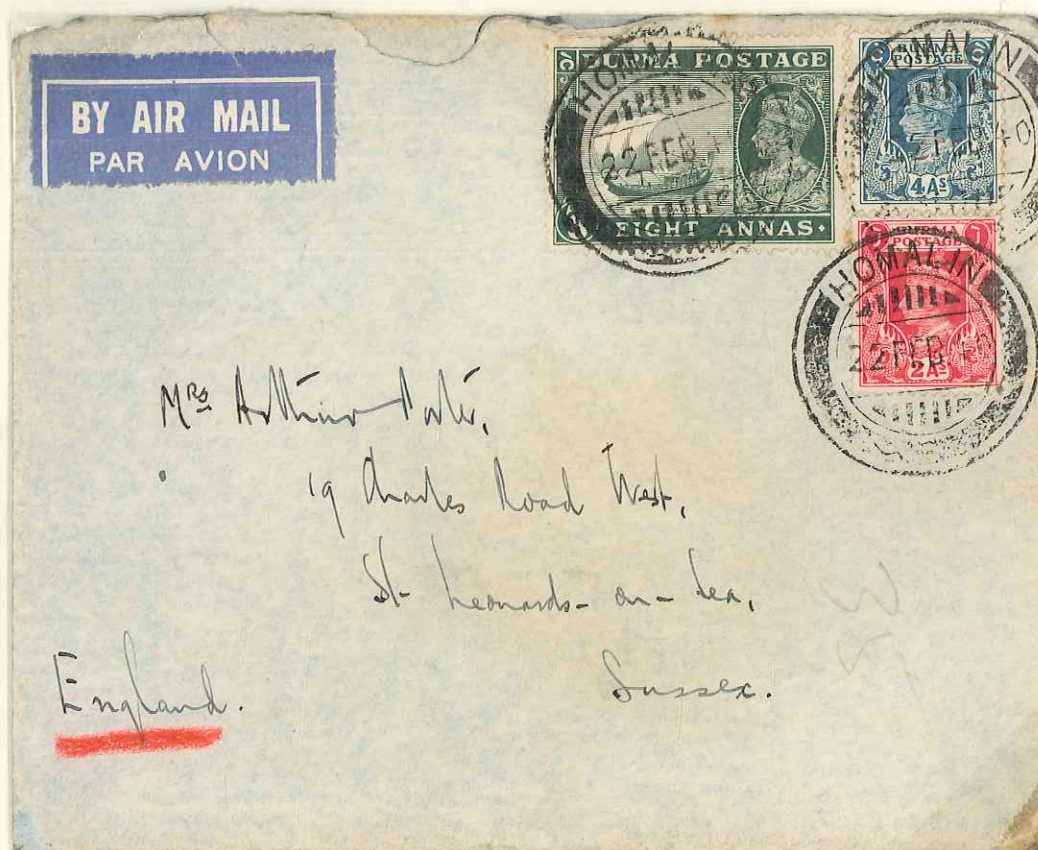 BY AIR MAIL
PAR AVION
BURMA POSTAGE
EIGHT ANNAS.
HOMALIN
22 FEB
BURMA
POSTAGE
4 As
HOMALIN
2 FEB 40
BURMA
POSTAGE
2 As
HOMALIN
22 FEB 40
Mrs Arthur Porter,
19 Charles Road West,
St- Leonards-on-Sea,
Sussex.
England.